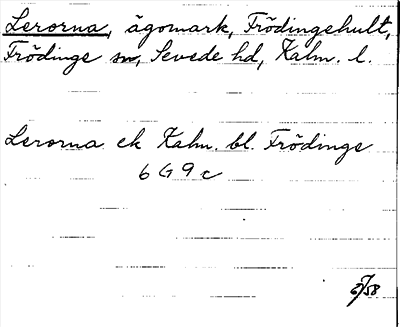 Lerorna, ägomark, Frödingehult,
Frödinge sn, Sevede hd, Kalm. l.
Lerorna ek Kalm. bl. Frödinge
6 G 9 c